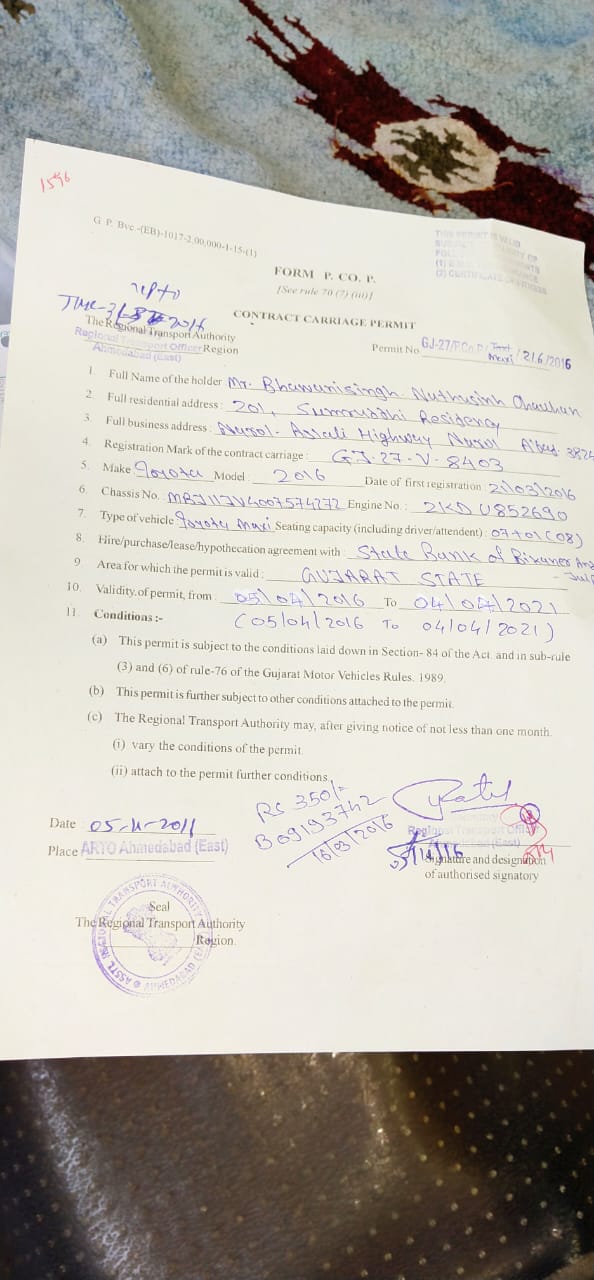 1596
G. P. Bvc.-(EB)-1017-2,00,000-1-15-(1)
THIS PERMIT IS VALID
FORM P. CO. P.
[See rule 70 (7) (iii)]
CONTRACT CARRIAGE PERMIT
upto
The Regional Transport Authority
Regional Transport Officer Region
Ahmedabad (East)
Permit No. GJ-27/P.Co.P/ Maxi /216/2016
1. Full Name of the holder Mr. Bhawanisingh Nathusinh Chauhan
2. Full residential address : 201, Sumruddhi Residency
3. Full business address : Narol- Aslali Highway Narol A'bad. 3824
4. Registration Mark of the contract carriage : GJ-27-V-8403
5. Make Toyota Model : 2016 Date of first registration : 21/03/2016
6. Chassis No. : MBJ11JV4007574272 Engine No. : 2KD U852690
7. Type of vehicle : Toyota Maxi Seating capacity (including driver/attendent) : 07+01 (08)
8. Hire/purchase/lease/hypothecation agreement with State Bank of Bikaner And
9. Area for which the permit is valid : GUJARAT STATE
10. Validity of permit, from : 05/04/2016 To 04/04/2021
11. Conditions :- (05/04/2016 To 04/04/2021)
(a) This permit is subject to the conditions laid down in Section- 84 of the Act. and in sub-rule
(3) and (6) of rule-76 of the Gujarat Motor Vehicles Rules. 1989.
(b) This permit is further subject to other conditions attached to the permit.
(c) The Regional Transport Authority may, after giving notice of not less than one month.
(i) vary the conditions of the permit
(ii) attach to the permit further conditions.
RS 350/-
B09193742
16/03/2016
Date 05-4-2016
Place ARTO Ahmedabad (East)
Regional Transport Officer
(East)
Signature and designation
of authorised signatory
Seal
The Regional Transport Authority
Region.
ASSTT. REGIONAL TRANSPORT AUTHORITY AHMEDABAD (EAST)